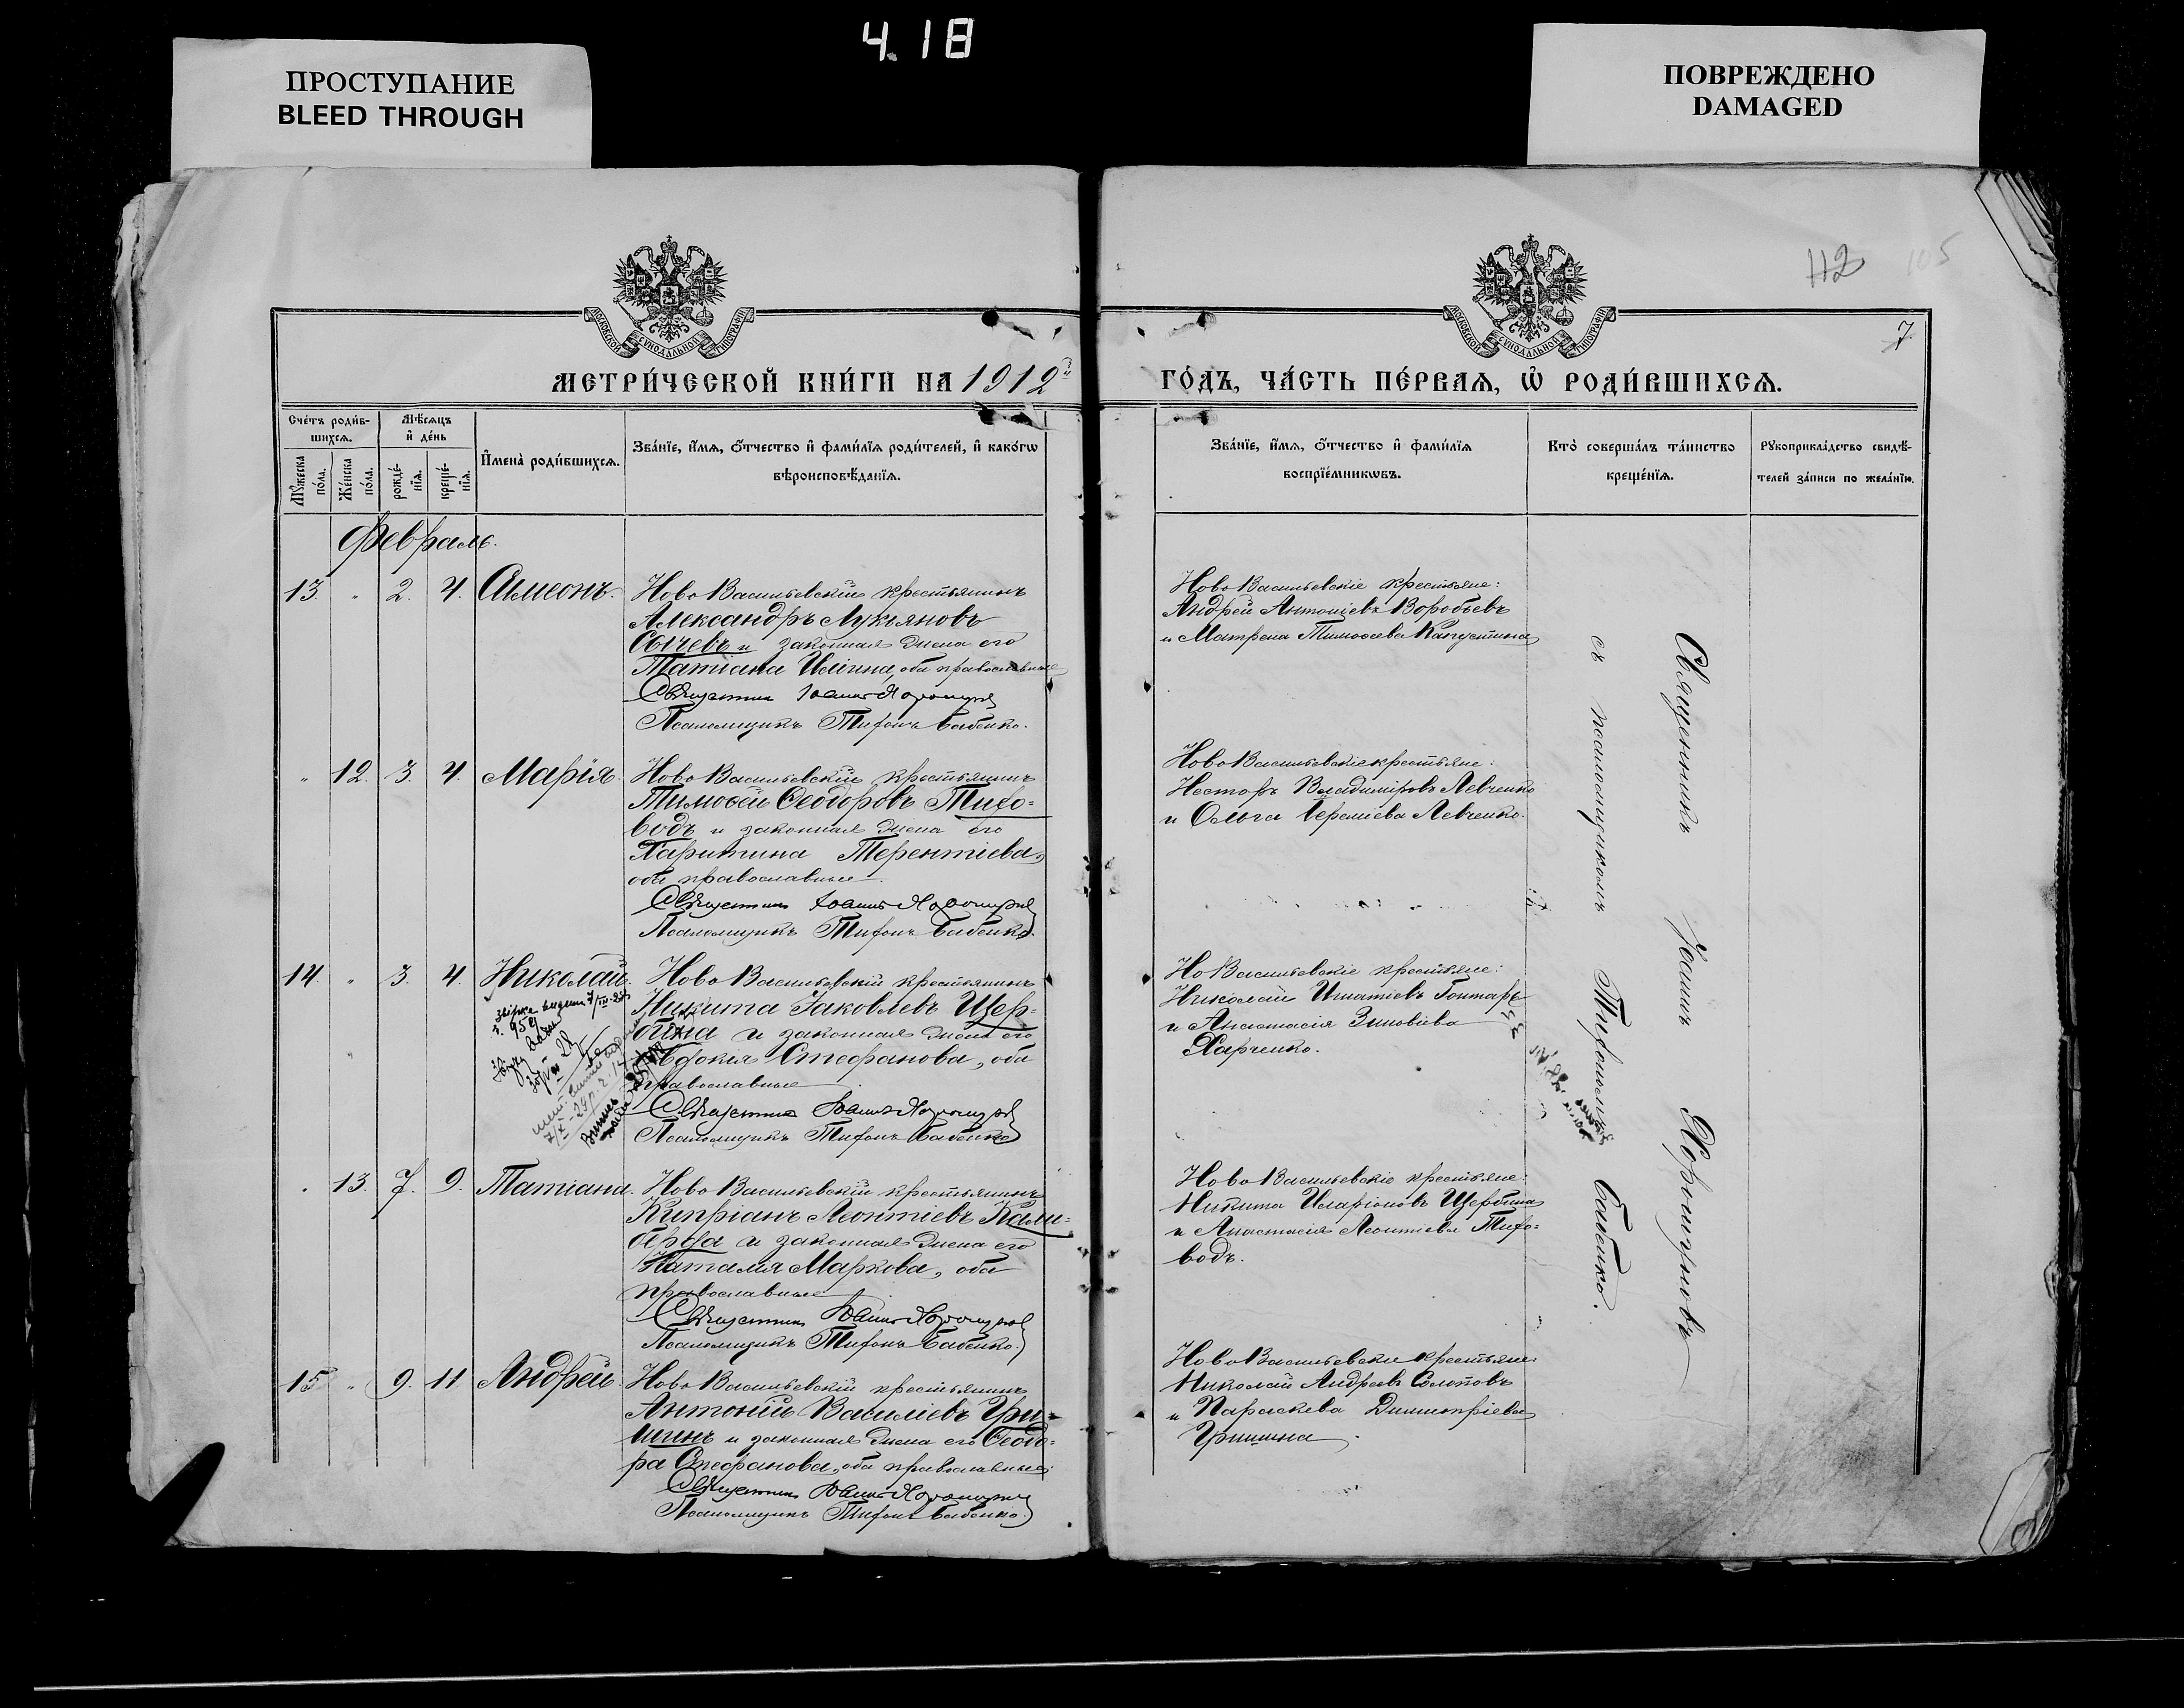 4.18
ПРОСТУПАНИЕ
BLEED THROUGH
ПОВРЕЖДЕНО
DAMAGED
112
105
7
МОСКОВСКОЙ СѴНОДАЛЬНОЙ ТИПОГРАФІИ
МОСКОВСКОЙ СѴНОДАЛЬНОЙ ТИПОГРАФІИ
МЕТРИ́ЧЕСКОЙ КНИ́ГИ НА 1912й
ГО́ДЪ, ЧА́СТЬ ПЕ́РВАѦ, Ѽ РОДИ́ВШИХСѦ.
Сче́тъ роди́в-
шихсѧ.
Мѣ́сѧцъ
и҆ де́нь
Мꙋ́жеска
по́ла.
Же́нска
по́ла.
рожде́-
нїѧ.
креще́-
нїѧ.
И҆мена̀ роди́вшихсѧ.
Зва́нїе, и҆́мѧ, ѻ҆́тчество и҆ фами́лїѧ роди́телей, и҆ како́гѡ
вѣроисповѣ́данїѧ.
Зва́нїе, и҆́мѧ, ѻ҆́тчество и҆ фами́лїѧ
воспрїе́мникѡвъ.
Кто̀ соверша́лъ та́инство
креще́нїѧ.
Рꙋкоприкла́дство свидѣ́-
телей за́писи по жела́нїю.
Февраль.
13. " 2. 4. Симеонъ.
Ново Васильевскій крестьянинъ
Александръ Лукьяновъ
Сычевъ и законная жена его
Татіана Ильина, оба православные
Священникъ Іоаннъ
Псаломщикъ Тихонъ Бабенко.
Ново Васильевскіе крестьяне:
Андрей Антоніевъ Воробьевъ
и Матрена Тимоѳеева Капустина
" 12. 3. 4. Марія.
Ново Васильевскій крестьянинъ
Тимоѳей Ѳеодоровъ Тихо-
водъ и законная жена его
Харитина Терентіева,
оба православные
Священникъ Іоаннъ
Псаломщикъ Тихонъ Бабенко.
Ново Васильевскіе крестьяне:
Несторъ Владиміровъ Левченко
и Ольга Іереміева Левченко.
14. " 3. 4. Николай.
Ново Васильевскій крестьянинъ
Никита Іаковлевъ Щер-
бина и законная жена его
Евдокія Стефанова, оба
православные
Священникъ Іоаннъ
Псаломщикъ Тихонъ Бабенко
Но Васильевскіе крестьяне:
Николай Игнатіевъ Гонтарь
и Анастасія Зиновіева
Харченко.
" 13. 7. 9. Татіана.
Ново Васильевскій крестьянинъ
Кипріанъ Леонтіевъ Кали-
берда и законная жена его
Наталія Маркова, оба
православные
Священникъ Іоаннъ
Псаломщикъ Тихонъ Бабенко.
Ново Васильевскіе крестьяне:
Никита Иларіоновъ Щербина
и Анастасія Леонтіева Тихо-
водъ.
15 " 9. 11 Андрей.
Ново Васильевскій крестьянинъ
Антоній Василіевъ Гри-
шинъ и законная жена его Ѳеодо-
ра Стефанова, оба православные.
Священникъ Іоаннъ
Псаломщикъ Тихонъ Бабенко.
Ново Васильевскіе крестьяне:
Николай Андреевъ Солоповъ
и Параскева Димитріева
Гришина.
Священникъ Іоаннъ
съ псаломщикомъ Тихономъ Бабенко.